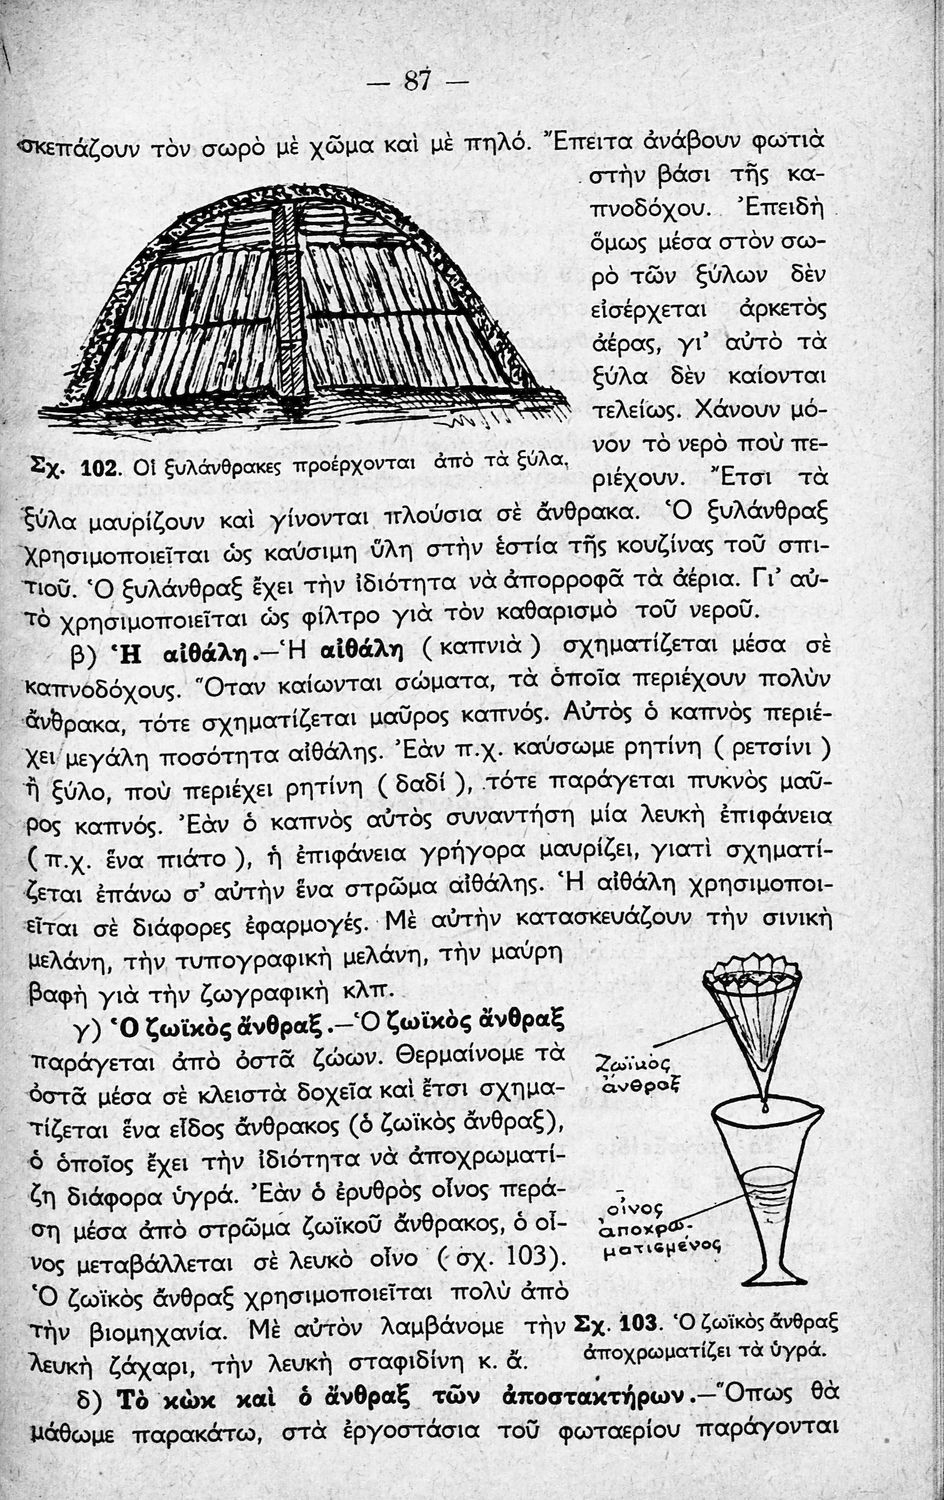 — 87 —
σκεπάζουν τὸν σωρὸ μὲ χῶμα καὶ μὲ πηλό. Ἔπειτα ἀνάβουν φωτιὰ
στὴν βάσι τῆς κα-
πνοδόχου. Ἐπειδὴ
ὅμως μέσα στὸν σω-
ρὸ τῶν ξύλων δὲν
εἰσέρχεται ἀρκετὸς
ἀέρας, γι’ αὐτὸ τὰ
ξύλα δὲν καίονται
τελείως. Χάνουν μό-
νον τὸ νερὸ ποὺ πε-
ριέχουν. Ἔτσι τὰ
Σχ. 102. Οἱ ξυλάνθρακες προέρχονται ἀπὸ τὰ ξύλα.
ξύλα μαυρίζουν καὶ γίνονται πλούσια σὲ ἄνθρακα. Ὁ ξυλάνθραξ
χρησιμοποιεῖται ὡς καύσιμη ὕλη στὴν ἑστία τῆς κουζίνας τοῦ σπι-
τιοῦ. Ὁ ξυλάνθραξ ἔχει τὴν ἰδιότητα νὰ ἀπορροφᾶ τὰ ἀέρια. Γι’ αὐ-
τὸ χρησιμοποιεῖται ὡς φίλτρο γιὰ τὸν καθαρισμὸ τοῦ νεροῦ.
β) Ἡ αἰθάλη.—Ἡ αἰθάλη ( καπνιὰ ) σχηματίζεται μέσα σὲ
καπνοδόχους. Ὅταν καίωνται σώματα, τὰ ὁποῖα περιέχουν πολὺν
ἄνθρακα, τότε σχηματίζεται μαῦρος καπνός. Αὐτὸς ὁ καπνὸς περιέ-
χει μεγάλη ποσότητα αἰθάλης. Ἐὰν π.χ. καύσωμε ρητίνη ( ρετσίνι )
ἢ ξύλο, ποὺ περιέχει ρητίνη ( δαδί ), τότε παράγεται πυκνὸς μαῦ-
ρος καπνός. Ἐὰν ὁ καπνὸς αὐτὸς συναντήση μία λευκὴ ἐπιφάνεια
( π.χ. ἕνα πιάτο ), ἡ ἐπιφάνεια γρήγορα μαυρίζει, γιατὶ σχηματί-
ζεται ἐπάνω σ’ αὐτὴν ἕνα στρῶμα αἰθάλης. Ἡ αἰθάλη χρησιμοποι-
εῖται σὲ διάφορες ἐφαρμογές. Μὲ αὐτὴν κατασκευάζουν τὴν σινικὴ
μελάνη, τὴν τυπογραφικὴ μελάνη, τὴν μαύρη
βαφὴ γιὰ τὴν ζωγραφικὴ κλπ.
γ) Ὁ ζωϊκὸς ἄνθραξ.—Ὁ ζωϊκὸς ἄνθραξ
παράγεται ἀπὸ ὀστᾶ ζώων. Θερμαίνομε τὰ
ὀστᾶ μέσα σὲ κλειστὰ δοχεῖα καὶ ἔτσι σχημα-
τίζεται ἕνα εἶδος ἄνθρακος (ὁ ζωϊκὸς ἄνθραξ),
ὁ ὁποῖος ἔχει τὴν ἰδιότητα νὰ ἀποχρωματί-
ζη διάφορα ὑγρά. Ἐὰν ὁ ἐρυθρὸς οἶνος περά-
ση μέσα ἀπὸ στρῶμα ζωϊκοῦ ἄνθρακος, ὁ οἶ-
νος μεταβάλλεται σὲ λευκὸ οἶνο ( σχ. 103).
Ὁ ζωϊκὸς ἄνθραξ χρησιμοποιεῖται πολὺ ἀπὸ
τὴν βιομηχανία. Μὲ αὐτὸν λαμβάνομε τὴν
λευκὴ ζάχαρι, τὴν λευκὴ σταφιδίνη κ. ἄ.
Ζωϊκὸς
ἄνθραξ
οἶνος
ἀποχρω-
ματισμένος
Σχ. 103. Ὁ ζωϊκὸς ἄνθραξ
ἀποχρωματίζει τὰ ὑγρά.
δ) Τὸ κὼκ καὶ ὁ ἄνθραξ τῶν ἀποστακτήρων.—Ὅπως θὰ
μάθωμε παρακάτω, στὰ ἐργοστάσια τοῦ φωταερίου παράγονται